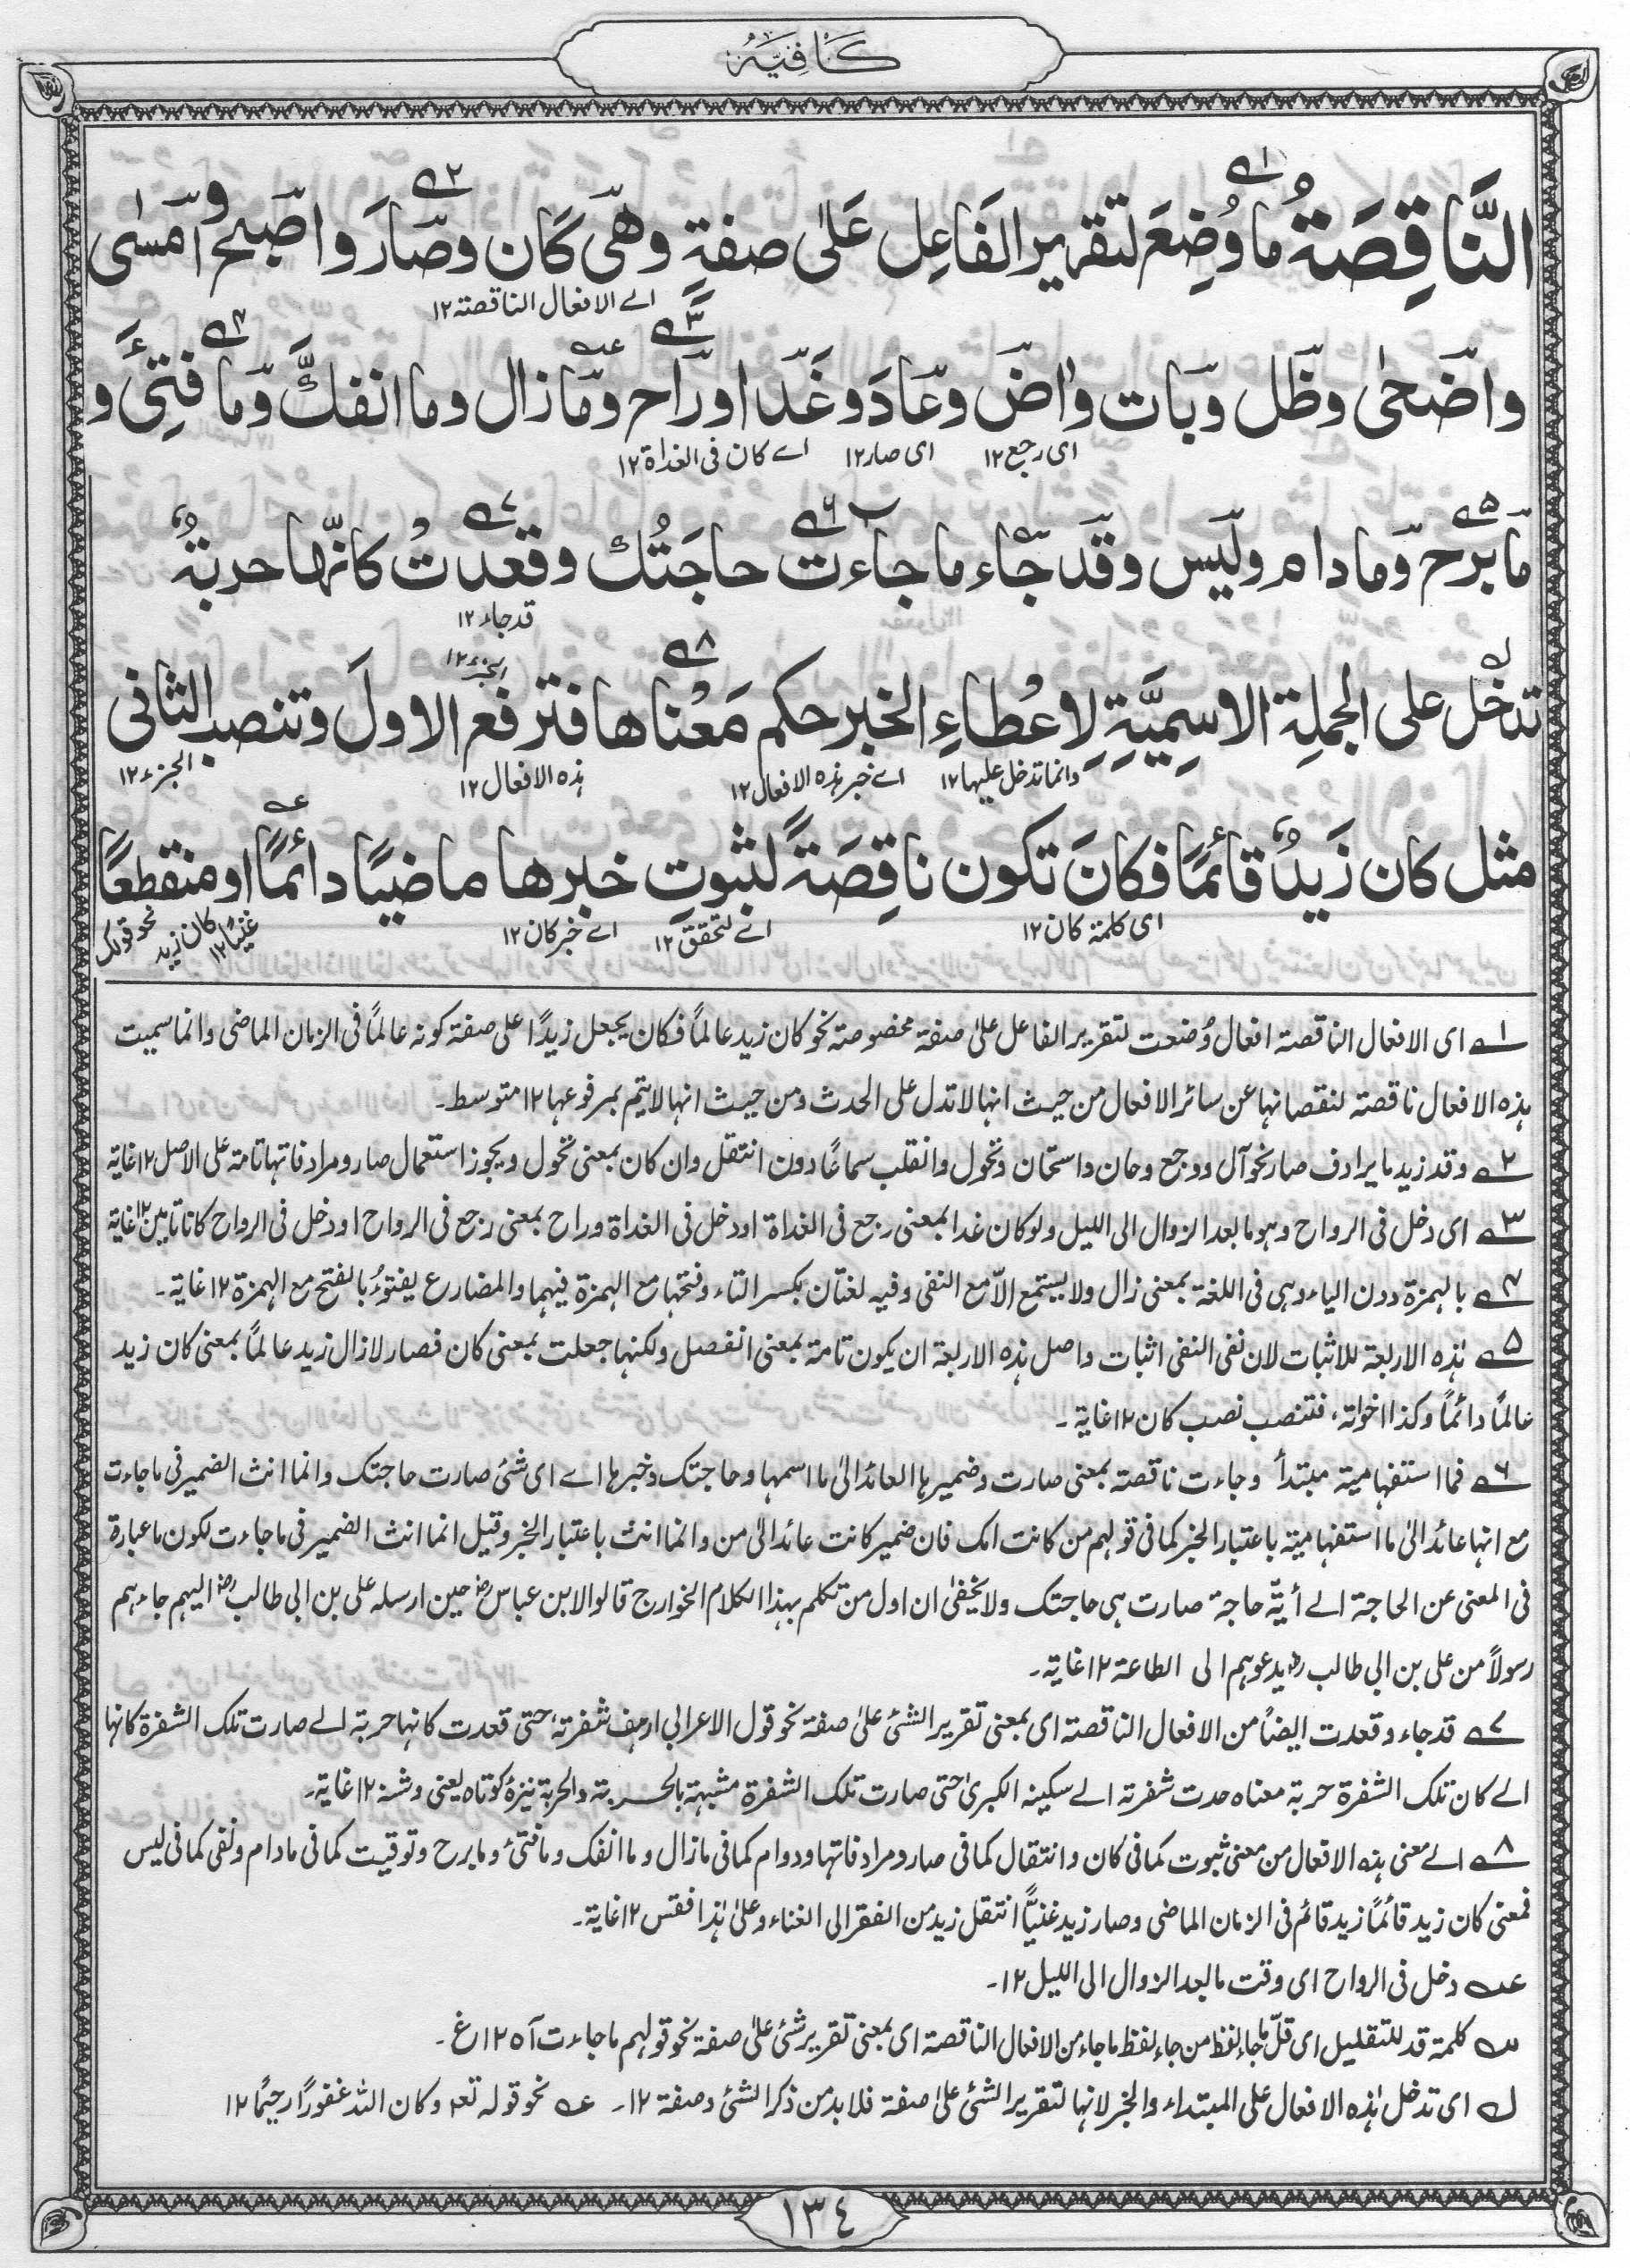 كَافِيَه
النَّاقِصَةُ مَا وُضِعَ لتقرير الفَاعِل عَلىٰ صفةٍ وهى كان وصَارَ واصبح وامسٰى
اے الافعال الناقصة ١٢
واضحٰى وظَل وبَات واٰضَ وعَادَ وغَدا اورَاح ومَا زال وما انفكَّ ومَا فتِئَ و
اى رجع ١٢ اى صار ١٢ اے كان فى الغداة ١٢
مَا برح ومَا دام وليس وقد جَاء ما جاءت حاجَتُك وقعدتْ كانّها حربةٌ
قد جاء ١٢
تدخل على الجملةِ الاسمِيَّةِ لِاعْطاءِ الخبر حكم مَعْناها فترفع الاولَ وتنصب الثانى
الجزء ١٢
وانما تدخل عليها ١٢ اے خبر هذه الافعال ١٢ هذه الافعال ١٢ الجزء ١٢
مثل كان زَيدٌ قائمًا فكانَ تكون ناقِصَةً لثبوتِ خبرها ماضيًا دائمًا او منقطعًا
اى كلمة كان ١٢ اے لتحقق ١٢ اے خبر كان ١٢ نحو قولك كان زيد غنيًا ١٢
١ اى الافعال الناقصة افعال وُضعت لتقرير الفاعل علىٰ صفة مخصوصة نحو كان زيد عالمًا فكان يجعل زيدًا على صفة كونه عالمًا فى الزمان الماضى وانما سميت
هذه الافعال ناقصة لنقصانها عن سائر الافعال من حيث انها لا تدل على الحدث ومن حيث انها لا يتم بمرفوعها ١٢ متوسط۔
٢ وقد زيد ما يرادف صار نحو آل ورجع وحان واستحان وتحول وانقلب سماعًا دون انتقل وان كان بمعنى تحول ويجوز استعمال صار ومرادفاتها تامة على الاصل ١٢ غاية
٣ اى دخل فى الرواح وهو ما بعد الزوال الى الليل ولو كان غدا بمعنى رجع فى الغداة او دخل فى الغداة وراح بمعنى رجع فى الرواح او دخل فى الرواح كانا تامين ١٢ غاية
٤ بالهمزة دون الياء وهى فى اللغة بمعنى زال ولا يستعمل الّا مع النفى وفيه لغتان بكسر التاء وفتحها مع الهمزة فيهما والمضارع يفتؤُ بالفتح مع الهمزة ١٢ غاية۔
٥ هٰذه الاربعة للاثبات لان نفى النفى اثبات واصل هذه الاربعة ان يكون تامة بمعنى انفصل ولكنها جعلت بمعنى كان فصار لا زال زيد عالمًا بمعنى كان زيد
عالمًا دائمًا وكذا اخواته، فتنصب نصب كان ١٢ غاية۔
٦ فما استفهامية مبتدأ وجاءت ناقصة بمعنى صارت وضميرها العائد الىٰ ما اسمها وحاجتك خبرها اے اى شئ صارت حاجتك وانما انث الضمير فى ما جاءت
مع انها عائد الىٰ ما استفهامية باعتبار الخبر كما فى قولهم من كانت امك فان ضمير كانت عائد الىٰ من وانما انث باعتبار الخبر وقيل انما انث الضمير فى ما جاءت لكون ما عبارة
فى المعنى عن الحاجة اے أيّة حاجة صارت هى حاجتك ولا يخفىٰ ان اول من تكلم بهذا الكلام الخوارج قالوا لابن عباسؓ حين ارسله على بن ابى طالبؓ اليهم جاءهم
رسولاً من على بن ابى طالبؓ يدعوهم الى الطاعة ١٢ غاية۔
٧ قد جاء وقعدت ايضًا من الافعال الناقصة اى بمعنى تقرير الشئ علىٰ صفة نحو قول الاعرابى ارهف شفرته حتى قعدت كانها حربة اے صارت تلك الشفرة كانها
اے كان تلك الشفرة حربة معناه حدت شفرته اے سكينه الكبرىٰ حتى صارت تلك الشفرة مشبهة بالحربة والحربة نيزۂ كوتاه يعنى وشنه ١٢ غاية۔
٨ اے معنى هذه الافعال من معنى ثبوت كما فى كان وانتقال كما فى صار ومرادفاتها ودوام كما فى ما زال وما انفك وما فتئ وما برح وتوقيت كما فى ما دام ونفى كما فى ليس
فمعنى كان زيد قائمًا زيد قائم فى الزمان الماضى وصار زيد غنيًّا انتقل زيد من الفقر الى الغناء وعلىٰ هٰذا فقس ١٢ غاية۔
عه دخل فى الرواح اى وقت ما بعد الزوال الى الليل ١٢۔
سه كلمة قد للتقليل اى قلّ ما جاء لفظ من جاء لفظ ما جاء من الافعال الناقصة اى بمعنى تقرير شئ علىٰ صفة نحو قولهم ما جاءت آه ١٢ غ۔
له اى تدخل هٰذه الافعال على المبتداء والخبر لانها لتقرير الشئ علىٰ صفة فلا بد من ذكر الشئ وصفة ١٢۔ عه نحو قوله تعـ وكان الله غفورًا رحيمًا ١٢
١٣٤